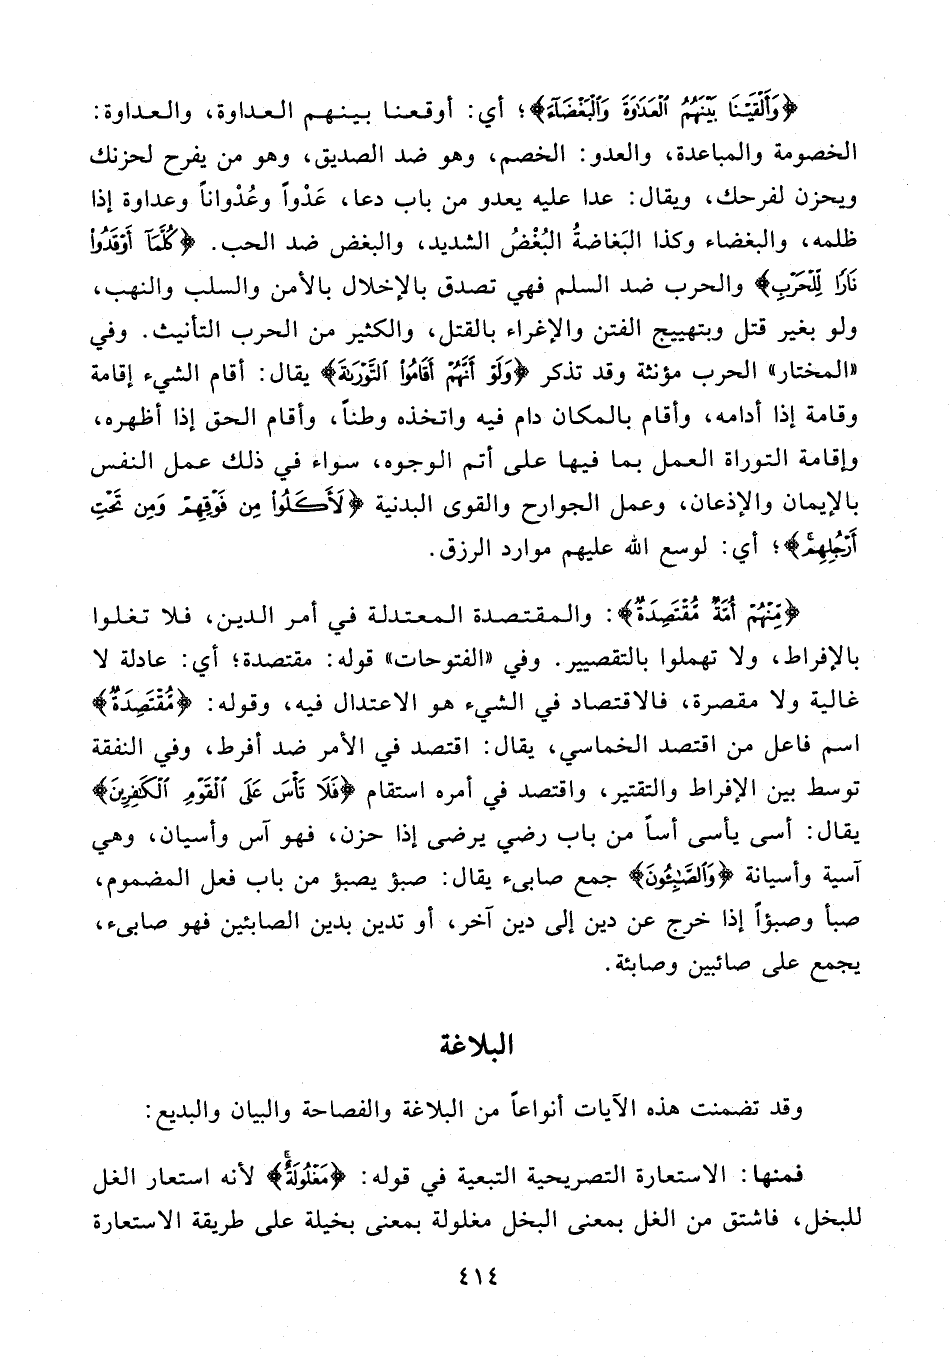 ﴿وَأَلْقَيْنَا بَيْنَهُمُ الْعَدَاوَةَ وَالْبَغْضَآءَ﴾؛ أي: أوقعنا بينهم العداوة، والعداوة:
الخصومة والمباعدة، والعدو: الخصم، وهو ضد الصديق، وهو من يفرح لحزنك
ويحزن لفرحك، ويقال: عدا عليه يعدو من باب دعا، عَدْواً وعُدْواناً وعداوة إذا
ظلمه، والبغضاء وكذا البَغاضةُ البُغْضُ الشديد، والبغض ضد الحب. ﴿كُلَّمَآ أَوْقَدُوا۟
نَارًا لِّلْحَرْبِ﴾ والحرب ضد السلم فهي تصدق بالإخلال بالأمن والسلب والنهب،
ولو بغير قتل وبتهييج الفتن والإغراء بالقتل، والكثير من الحرب التأنيث. وفي
«المختار» الحرب مؤنثة وقد تذكر ﴿وَلَوْ أَنَّهُمْ أَقَامُوا۟ ٱلتَّوْرَىٰةَ﴾ يقال: أقام الشيء إقامة
وقامة إذا أدامه، وأقام بالمكان دام فيه واتخذه وطناً، وأقام الحق إذا أظهره،
وإقامة التوراة العمل بما فيها على أتم الوجوه، سواء في ذلك عمل النفس
بالإيمان والإذعان، وعمل الجوارح والقوى البدنية ﴿لَأَكَلُوا۟ مِن فَوْقِهِمْ وَمِن تَحْتِ
أَرْجُلِهِمْ﴾؛ أي: لوسع الله عليهم موارد الرزق.
﴿مِّنْهُمْ أُمَّةٌ مُّقْتَصِدَةٌ﴾: والمقتصدة المعتدلة في أمر الدين، فلا تغلوا
بالإفراط، ولا تهملوا بالتقصيير. وفي «الفتوحات» قوله: مقتصدة؛ أي: عادلة لا
غالية ولا مقصرة، فالاقتصاد في الشيء هو الاعتدال فيه، وقوله: ﴿مُّقْتَصِدَةٌ﴾
اسم فاعل من اقتصد الخماسي، يقال: اقتصد في الأمر ضد أفرط، وفي النفقة
توسط بين الإفراط والتقتير، واقتصد في أمره استقام ﴿فَلَا تَأْسَ عَلَى ٱلْقَوْمِ ٱلْكَـٰفِرِينَ﴾
يقال: أسى يأسى أساً من باب رضي يرضى إذا حزن، فهو آس وأسيان، وهي
آسية وأسيانة ﴿وَٱلصَّـٰبِـُٔونَ﴾ جمع صابىء يقال: صبؤ يصبؤ من باب فعل المضموم،
صبأ وصبؤاً إذا خرج عن دين إلى دين آخر، أو تدين بدين الصابئين فهو صابىء،
يجمع على صائبين وصابئة.
البلاغة
وقد تضمنت هذه الآيات أنواعاً من البلاغة والفصاحة والبيان والبديع:
فمنها: الاستعارة التصريحية التبعية في قوله: ﴿مَغْلُولَةٌ﴾ لأنه استعار الغل
للبخل، فاشتق من الغل بمعنى البخل مغلولة بمعنى بخيلة على طريقة الاستعارة
٤١٤